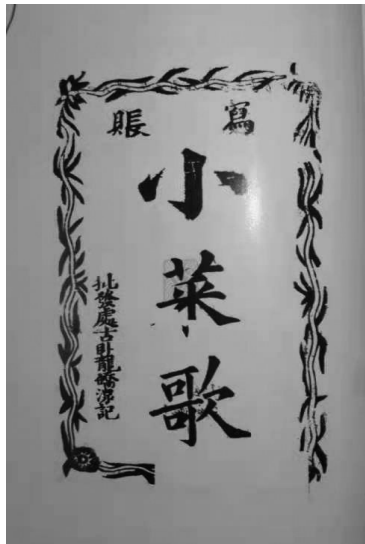 寫賬
小菜歌
批發處古卧龍橋記